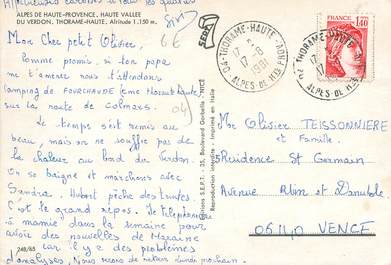 affectueuses caresses à tous les quatre
ALPES DE HAUTE-PROVENCE, HAUTE VALLEE
DU VERDON, THORAME-HAUTE, Altitude 1.150 m.
6€
Mon Cher petit Olivier,
Comme promis, si ton papa
te l'amène nous t'attendons
camping de FONTCHAUDE
sur la route de Colmars.
04)
Le temps s'est remis au
beau, mais on ne souffre pas de
la chaleur au bord du Verdon.
On se baigne et marchons avec
Sandra. Hubert pêche des truites.
C'est le grand repos. Je téléphonerai
à mamie dans la semaine pour
avoir des nouvelles de Marraine
car il y a des problèmes
d'analyses. Nous serons de retour lundi prochain.
248/85
EDITIONS S.E.P.T. - 35, Boulevard Gorbella - NICE
Reproduction interdite - Imprimé en Italie
SEPT
04-THORAME-HAUTE
17-8
1981
ALPES DE HTE PROV.
REPUBLIQUE FRANCAISE
1,40
04-THORAME-HAUTE
17-8
ALPES DE HTE
Mr Olivier TEISSONNIERE
et Famille.
Résidence St Germain
Avenue Rhin et Danube
06140 VENCE